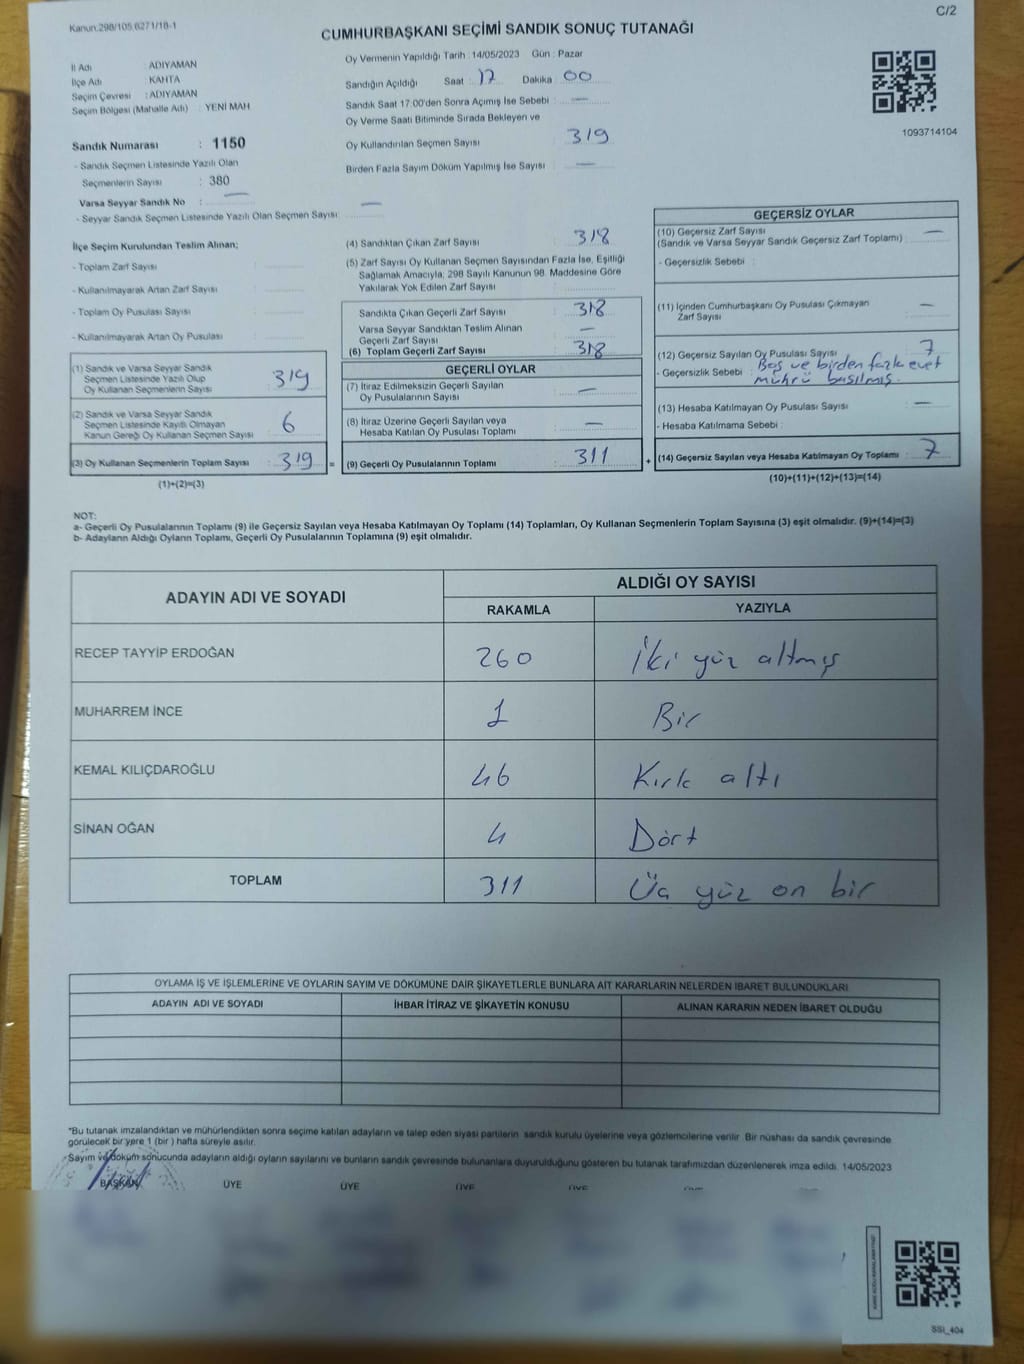 C/2
Kanun.298/105.6271/18-1
CUMHURBAŞKANI SEÇİMİ SANDIK SONUÇ TUTANAĞI
İl Adı : ADIYAMAN
İlçe Adı : KAHTA
Seçim Çevresi : ADIYAMAN
Seçim Bölgesi (Mahalle Adı) : YENİ MAH
Sandık Numarası : 1150
- Sandık Seçmen Listesinde Yazılı Olan
Seçmenlerin Sayısı : 380
Varsa Seyyar Sandık No : —
- Seyyar Sandık Seçmen Listesinde Yazılı Olan Seçmen Sayısı: —
Oy Vermenin Yapıldığı Tarih : 14/05/2023 Gün : Pazar
Sandığın Açıldığı Saat : 17 Dakika : 00
Sandık Saat 17.00'den Sonra Açımış İse Sebebi : —
Oy Verme Saati Bitiminde Sırada Bekleyen ve
Oy Kullandırılan Seçmen Sayısı : 319
Birden Fazla Sayım Döküm Yapılmış İse Sayısı : —
1093714104
İlçe Seçim Kurulundan Teslim Alınan;
- Toplam Zarf Sayısı :
- Kullanılmayarak Artan Zarf Sayısı :
- Toplam Oy Pusulası Sayısı :
- Kullanılmayarak Artan Oy Pusulası :
(1) Sandık ve Varsa Seyyar Sandık
Seçmen Listesinde Yazılı Olup
Oy Kullanan Seçmenlerin Sayısı : 319
(2) Sandık ve Varsa Seyyar Sandık
Seçmen Listesinde Kayıtlı Olmayan
Kanun Gereği Oy Kullanan Seçmen Sayısı : 6
(3) Oy Kullanan Seçmenlerin Toplam Sayısı : 319 =
(1)+(2)=(3)
(4) Sandıktan Çıkan Zarf Sayısı : 318
(5) Zarf Sayısı Oy Kullanan Seçmen Sayısından Fazla İse, Eşitliği
Sağlamak Amacıyla; 298 Sayılı Kanunun 98. Maddesine Göre
Yakılarak Yok Edilen Zarf Sayısı :
Sandıkta Çıkan Geçerli Zarf Sayısı : 318
Varsa Seyyar Sandıktan Teslim Alınan
Geçerli Zarf Sayısı : —
(6) Toplam Geçerli Zarf Sayısı : 318
GEÇERLİ OYLAR
(7) İtiraz Edilmeksizin Geçerli Sayılan
Oy Pusulalarının Sayısı : —
(8) İtiraz Üzerine Geçerli Sayılan veya
Hesaba Katılan Oy Pusulası Toplamı : —
(9) Geçerli Oy Pusulalarının Toplamı : 311 +
GEÇERSİZ OYLAR
(10) Geçersiz Zarf Sayısı
(Sandık ve Varsa Seyyar Sandık Geçersiz Zarf Toplamı) : —
- Geçersizlik Sebebi :
(11) İçinden Cumhurbaşkanı Oy Pusulası Çıkmayan
Zarf Sayısı : —
(12) Geçersiz Sayılan Oy Pusulası Sayısı : 7
- Geçersizlik Sebebi : Boş ve birden fazla evet
mührü basılmış.
(13) Hesaba Katılmayan Oy Pusulası Sayısı : —
- Hesaba Katılmama Sebebi :
(14) Geçersiz Sayılan veya Hesaba Katılmayan Oy Toplamı : 7
(10)+(11)+(12)+(13)=(14)
NOT:
a- Geçerli Oy Pusulalarının Toplamı (9) ile Geçersiz Sayılan veya Hesaba Katılmayan Oy Toplamı (14) Toplamları, Oy Kullanan Seçmenlerin Toplam Sayısına (3) eşit olmalıdır. (9)+(14)=(3)
b- Adayların Aldığı Oyların Toplamı, Geçerli Oy Pusulalarının Toplamına (9) eşit olmalıdır.
ADAYIN ADI VE SOYADI ALDIĞI OY SAYISI
RAKAMLA YAZIYLA
RECEP TAYYİP ERDOĞAN 260 İki yüz altmış
MUHARREM İNCE 1 Bir
KEMAL KILIÇDAROĞLU 46 Kırk altı
SİNAN OĞAN 4 Dört
TOPLAM 311 Üç yüz on bir
OYLAMA İŞ VE İŞLEMLERİNE VE OYLARIN SAYIM VE DÖKÜMÜNE DAİR ŞİKAYETLERLE BUNLARA AİT KARARLARIN NELERDEN İBARET BULUNDUKLARI
ADAYIN ADI VE SOYADI İHBAR İTİRAZ VE ŞİKAYETİN KONUSU ALINAN KARARIN NEDEN İBARET OLDUĞU
"Bu tutanak imzalandıktan ve mühürlendikten sonra seçime katılan adayların ve talep eden siyasi partilerin sandık kurulu üyelerine veya gözlemcilerine verilir. Bir nüshası da sandık çevresinde
görülecek bir yere 1 (bir ) hafta süreyle asılır.
Sayım ve döküm sonucunda adayların aldığı oyların sayılarını ve bunların sandık çevresinde bulunanlara duyurulduğunu gösteren bu tutanak tarafımızdan düzenlenerek imza edildi. 14/05/2023
BAŞKAN ÜYE ÜYE ÜYE ÜYE
SSI_404